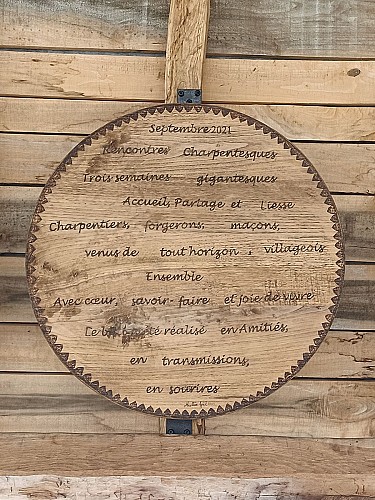 Septembre 2021
Rencontres Charpentesques
Trois semaines gigantesques
Accueil, Partage et Liesse
Charpentiers, forgerons, maçons,
venus de tout horizon, villageois
Ensemble
Avec cœur, savoir-faire et joie de vivre
Ce été réalisé en Amitiés,
en transmissions,
en sourires